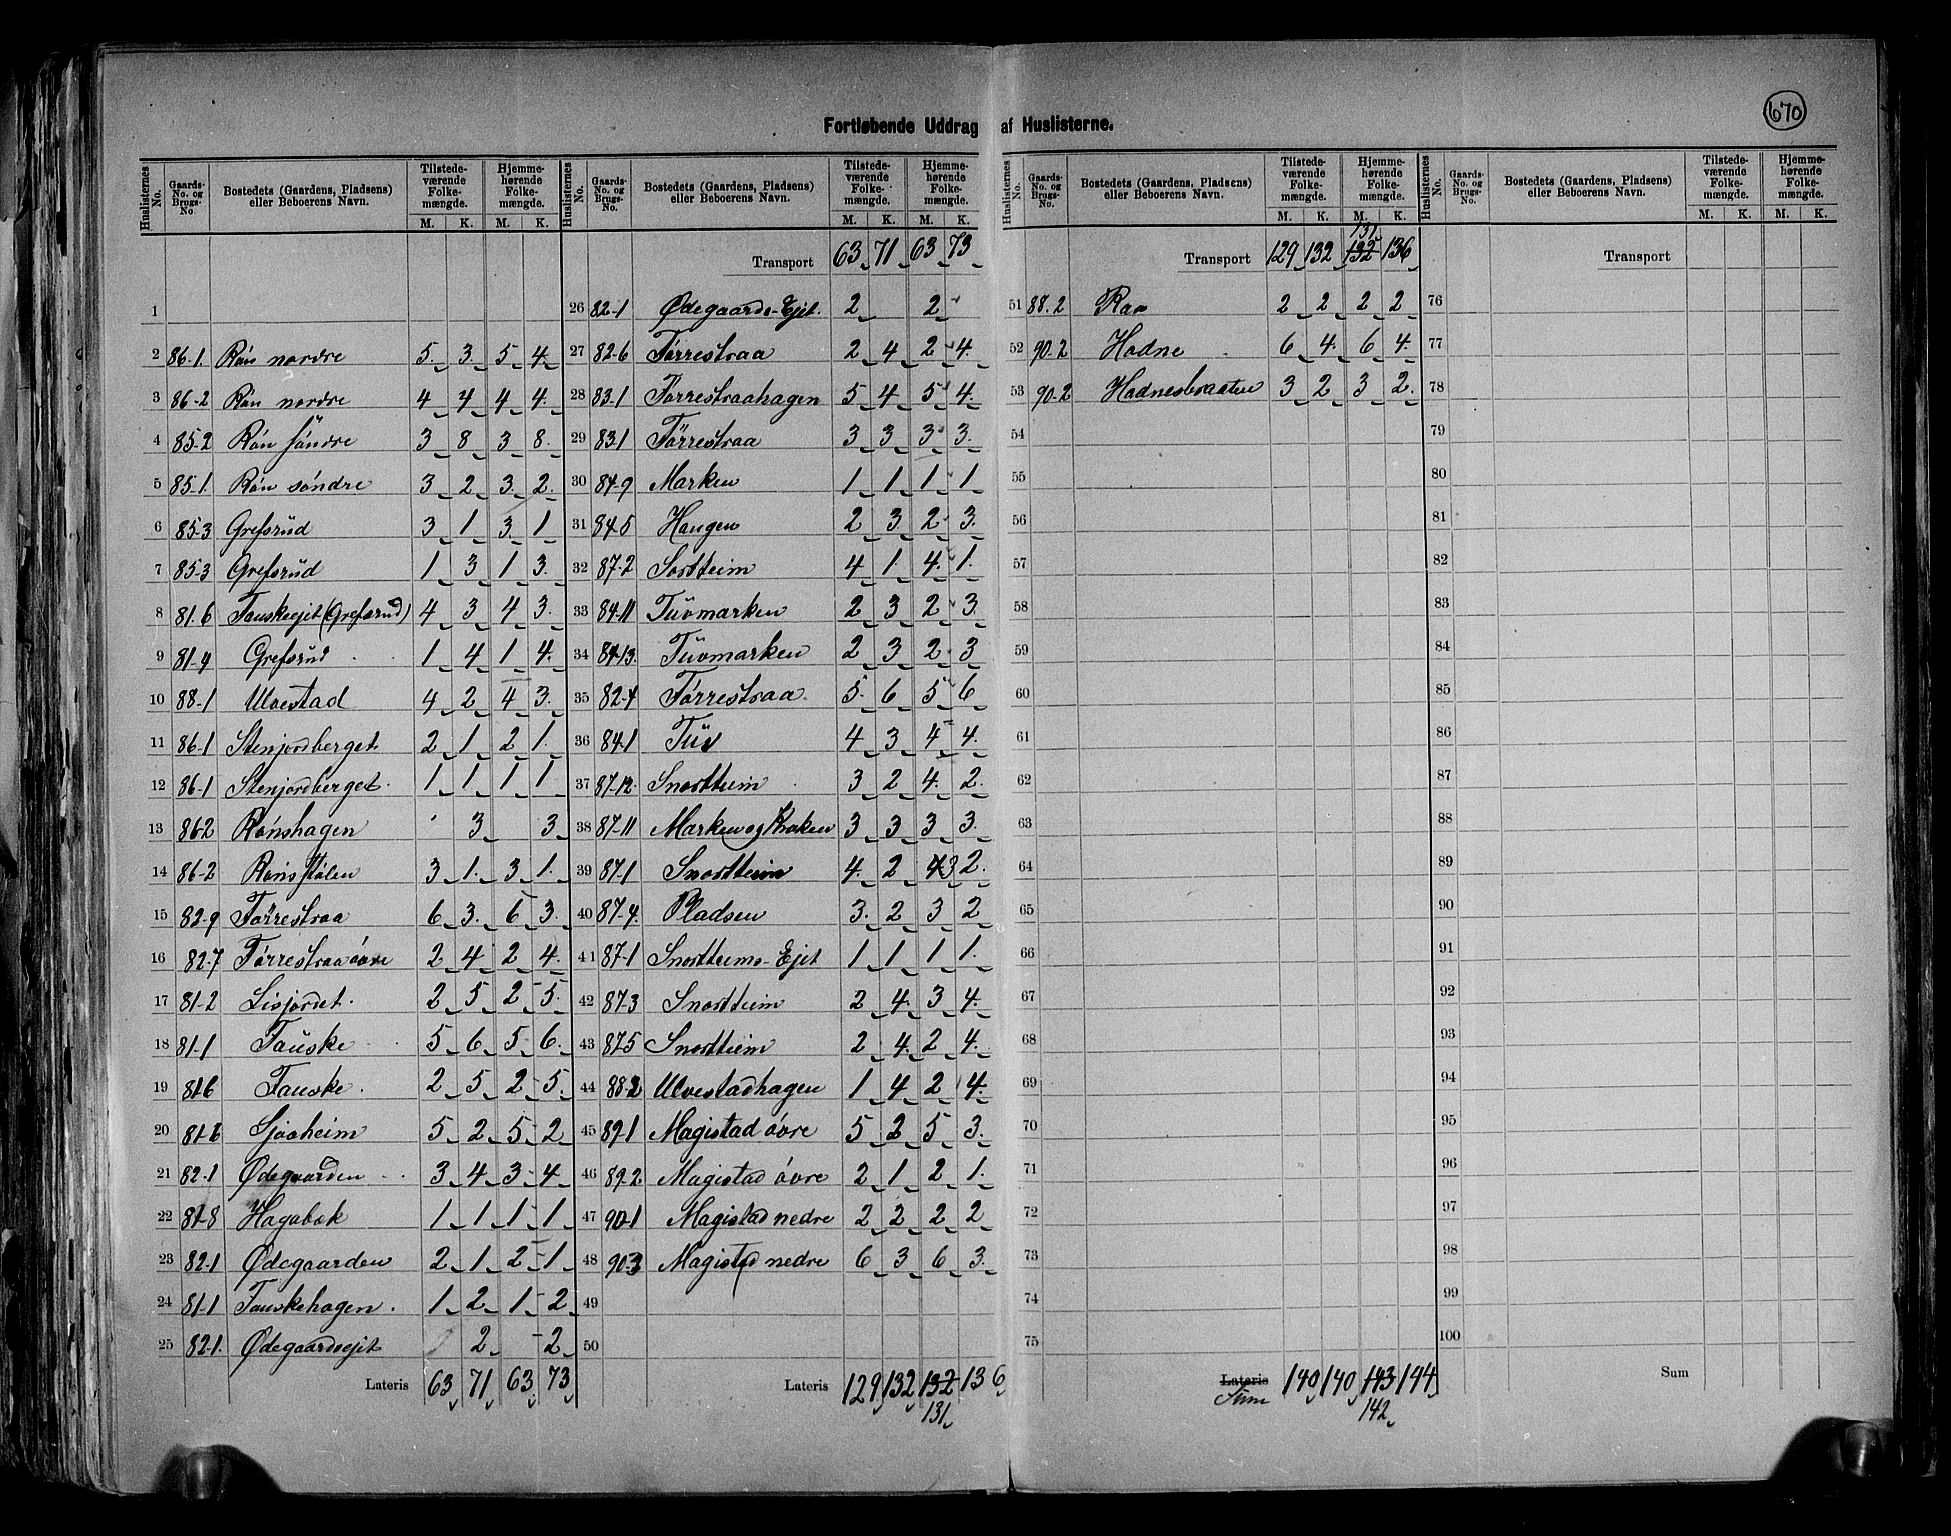 670
Fortløbende Uddrag af Huslisterne.
Huslisternes No. Gaards-No. og Brugs-No. Bostedets (Gaardens, Pladsens) eller Beboerens Navn. Tilstede-værende Folke-mængde. M. K. Hjemme-hørende Folke-mængde. M. K.
1
2 86-1. Rön nordre 5 3 5 4
3 86-2 Rön nordre 4 4 4 4
4 85-2 Rön söndre 3 8 3 8
5 85-1. Rön söndre 3 2 3 2
6 85-3 Grefsrud 3 1 3 1
7 85-3 Grefsrud 1 3 1 3
8 81-6 Fauskeejet (Grefsrud) 4 3 4 3
9 81-9 Grefsrud 1 4 1 4
10 88-1 Ulvestad 4 2 4 3
11 86-1 Stenjordberget 2 1 2 1
12 86-1 Stenjordberget 1 1 1 1
13 86-2 Rönshagen 3 3
14 86-2 Rönsstölen 3 1 3 1
15 82-9 Förrestraa 6 3 6 3
16 82-7 Förrestraa övre 2 4 2 4
17 81-2 Lisjordet 2 5 2 5
18 81-1 Fauske 5 6 5 6
19 81-6 Fauske 2 5 2 5
20 81-6 Sjaaheim 5 2 5 2
21 82-1 Ødegaarden 3 4 3 4
22 81-8 Hagabak 1 1 1 1
23 82-1 Ødegaarden 2 1 2 1
24 81-1 Fauskehagen 1 2 1 2
25 82-1. Ødegaardsejet 2 2
Lateris 63 71 63 73
Huslisternes No. Gaards-No. og Brugs-No. Bostedets (Gaardens, Pladsens) eller Beboerens Navn. Tilstede-værende Folke-mængde. M. K. Hjemme-hørende Folke-mængde. M. K.
Transport 63 71 63 73
26 82-1 Ødegaards-Ejet. 2 2
27 82-6 Förrestraa 2 4 2 4
28 83-1 Förrestraahagen 5 4 5 4
29 83-1 Förrestraa 3 3 3 3
30 84-9 Marken 1 1 1 1
31 84-5 Haugen 2 3 2 3
32 87-2 Sortteim 4 1 4 1
33 84-11 Tuvmarken 2 3 2 3
34 84-13. Tuvmarken 2 3 2 3
35 82-4 Förrestraa 5 6 5 6
36 84-1 Tuv 4 3 4 4
37 87-12. Snortteim 3 2 4 2
38 87-11 Marken og Kroken 3 3 3 3
39 87-1 Snortteim 4 2 4 3 2
40 87-4. Pladsen 3 2 3 2
41 87-1 Snortteims-Ejet 1 1 1 1
42 87-3 Snortteim 2 4 3 4
43 87-5 Snortteim 2 4 2 4
44 88-2 Ulvestadhagen 1 4 2 4
45 89-1 Magistad övre 5 2 5 3
46 89-2 Magistad övre 2 1 2 1
47 90-1 Magistad nedre 2 2 2 2
48 90-3 Magistad nedre 6 3 6 3
49
50
Lateris 129 132 132 136
131
Huslisternes No. Gaards-No. og Brugs-No. Bostedets (Gaardens, Pladsens) eller Beboerens Navn. Tilstede-værende Folke-mængde. M. K. Hjemme-hørende Folke-mængde. M. K.
131
Transport 129 132 132 136
51 88-2 Raa 2 2 2 2
52 90-2 Hadne 6 4 6 4
53 90-2 Hadnesbraaten 3 2 3 2
54
55
56
57
58
59
60
61
62
63
64
65
66
67
68
69
70
71
72
73
74
75
Lateris Sum 140 140 143 144
142
Huslisternes No. Gaards-No. og Brugs-No. Bostedets (Gaardens, Pladsens) eller Beboerens Navn. Tilstede-værende Folke-mængde. M. K. Hjemme-hørende Folke-mængde. M. K.
Transport
76
77
78
79
80
81
82
83
84
85
86
87
88
89
90
91
92
93
94
95
96
97
98
99
100
Sum